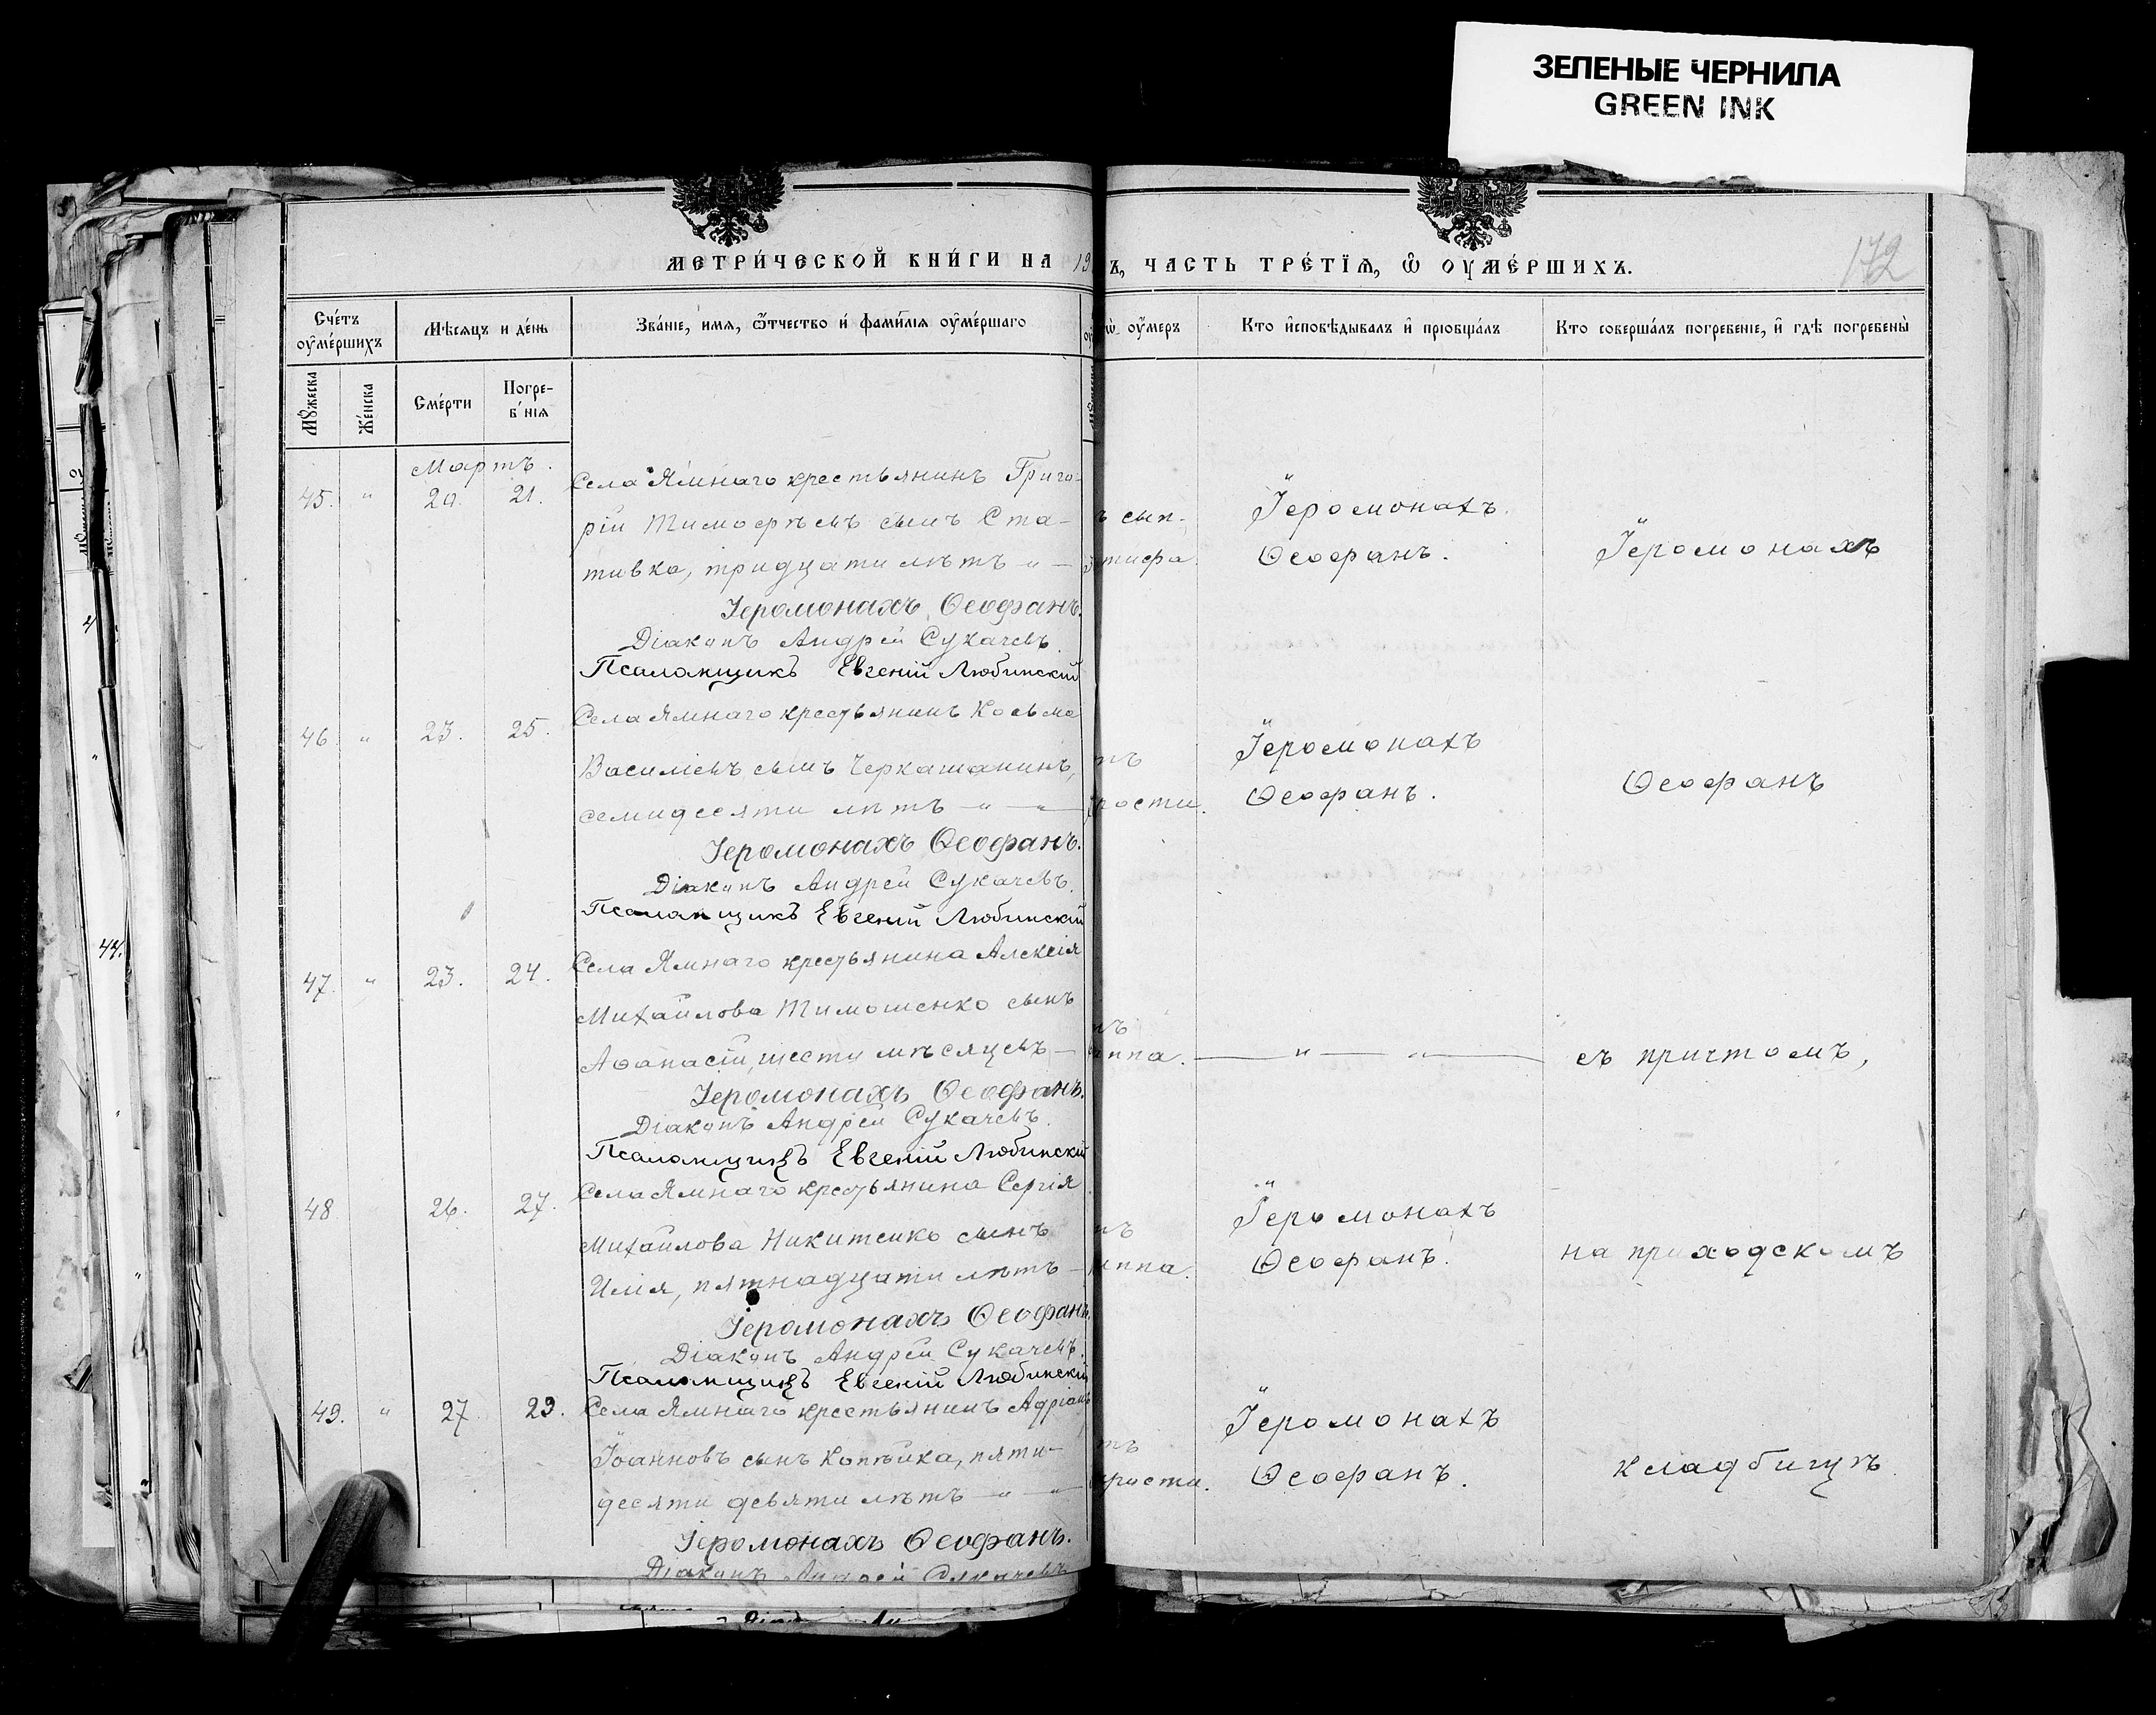 ЗЕЛЕНЫЕ ЧЕРНИЛА
GREEN INK
172
МЕТРИ́ЧЕСКОЙ КНИ́ГИ НА 19
Ъ, ЧАСТЬ ТРЕ́ТЇѦ, Ѿ ОУМЕ́РШИХЪ.
Сче́тъ оуме́ршихъ
Мѣсяцъ и де́нь
Зва́нїе, и́мѧ, ѻ́тчество и҆ фами́лїѧ оуме́ршаго
оуме́ръ
Кто и҆сповѣ́дывалъ и҆ прїобща́лъ
Кто соверша́лъ погребе́нїе, и҆ гдѣ̀ погребены̀
Мꙋ́жеска
Же́нска
Сме́рти
Погре-
б́нїѧ
Мартъ.
45. " 20. 21.
Села Ямнаго крестьянинъ Григо-
рій Тимофѣевъ сынъ Ста-
тивка, тридцати лѣтъ " —
Іеромонахъ Ѳеофанъ.
Діаконъ Андрей Сукачевъ.
Псаломщикъ Евгеній Любинскій
ъ сып-
тифа.
Іеромонахъ
Ѳеофанъ.
Іеромонахъ
46. " 23. 25.
Села Ямнаго крестьянинъ Косьма
Василіевъ сынъ Черкашанинъ,
семидесяти лѣтъ — " — "
Іеромонахъ Ѳеофанъ.
Діаконъ Андрей Сукачевъ.
Псаломщикъ Евгеній Любинскій
рости.
Іеромонахъ
Ѳеофанъ.
Ѳеофанъ
47. " 23. 24.
Села Ямнаго крестьянина Алексія
Михайлова Тимошенко сынъ
Аѳанасій, шести мѣсяцевъ —
Іеромонахъ Ѳеофанъ.
Діаконъ Андрей Сукачевъ.
Псаломщикъ Евгеній Любинскій
ппа. — " — " —
съ причтомъ,
48. 26. 27.
Села Ямнаго крестьянина Сергія
Михайлова Никитенко сынъ
Илія, пятнадцати лѣтъ —
Іеромонахъ Ѳеофанъ.
Діаконъ Андрей Сукачевъ.
Псаломщикъ Евгеній Любинскій
ппа.
Іеромонахъ
Ѳеофанъ.
на приходскомъ
49. " 27. 29.
Села Ямнаго крестьянинъ Адріанъ
Іоанновъ сынъ Копѣйка, пяти-
десяти девяти лѣтъ — " — "
Іеромонахъ Ѳеофанъ.
Діаконъ Андрей Сукачевъ
рости.
Іеромонахъ
Ѳеофанъ.
кладбищѣ
44.